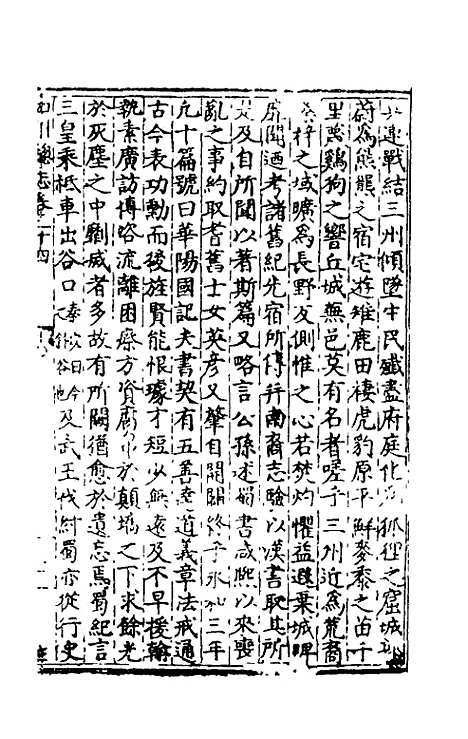 兵連戰結三州傾墜中民殲盡府庭化為狐狸之窟城郭
蔚為熊羆之宿宅遊雉鹿田棲虎豹原平鮮麥黍之苗千
里蔑鷄狗之響丘城蕪邑莫有名者嗟乎三州近為荒裔
桑梓之域曠為長野反側惟之心若焚灼懼益遐棄城陴
靡聞迺考諸舊紀先宿所傳并南裔志驗以漢書取其所
是及自所聞以著斯篇又略言公孫述蜀書咸熙以來喪
亂之事約取耆舊士女英彦又肇自開闢終乎永和三年
凡十篇號曰華陽國記夫書契有五善達道義章法戒通
古今表功勳而後旌賢能恨璩才短少無遠及不早援翰
執素廣訪博咨流離困瘵方資腐帛於顛墻之下求餘光
於灰塵之中劘滅者多故有所闕猶愈於遺忘焉蜀紀言
三皇乘祗車出谷口秦宓曰今之斜谷也及武王伐紂蜀亦從行史
四川總志卷二十四